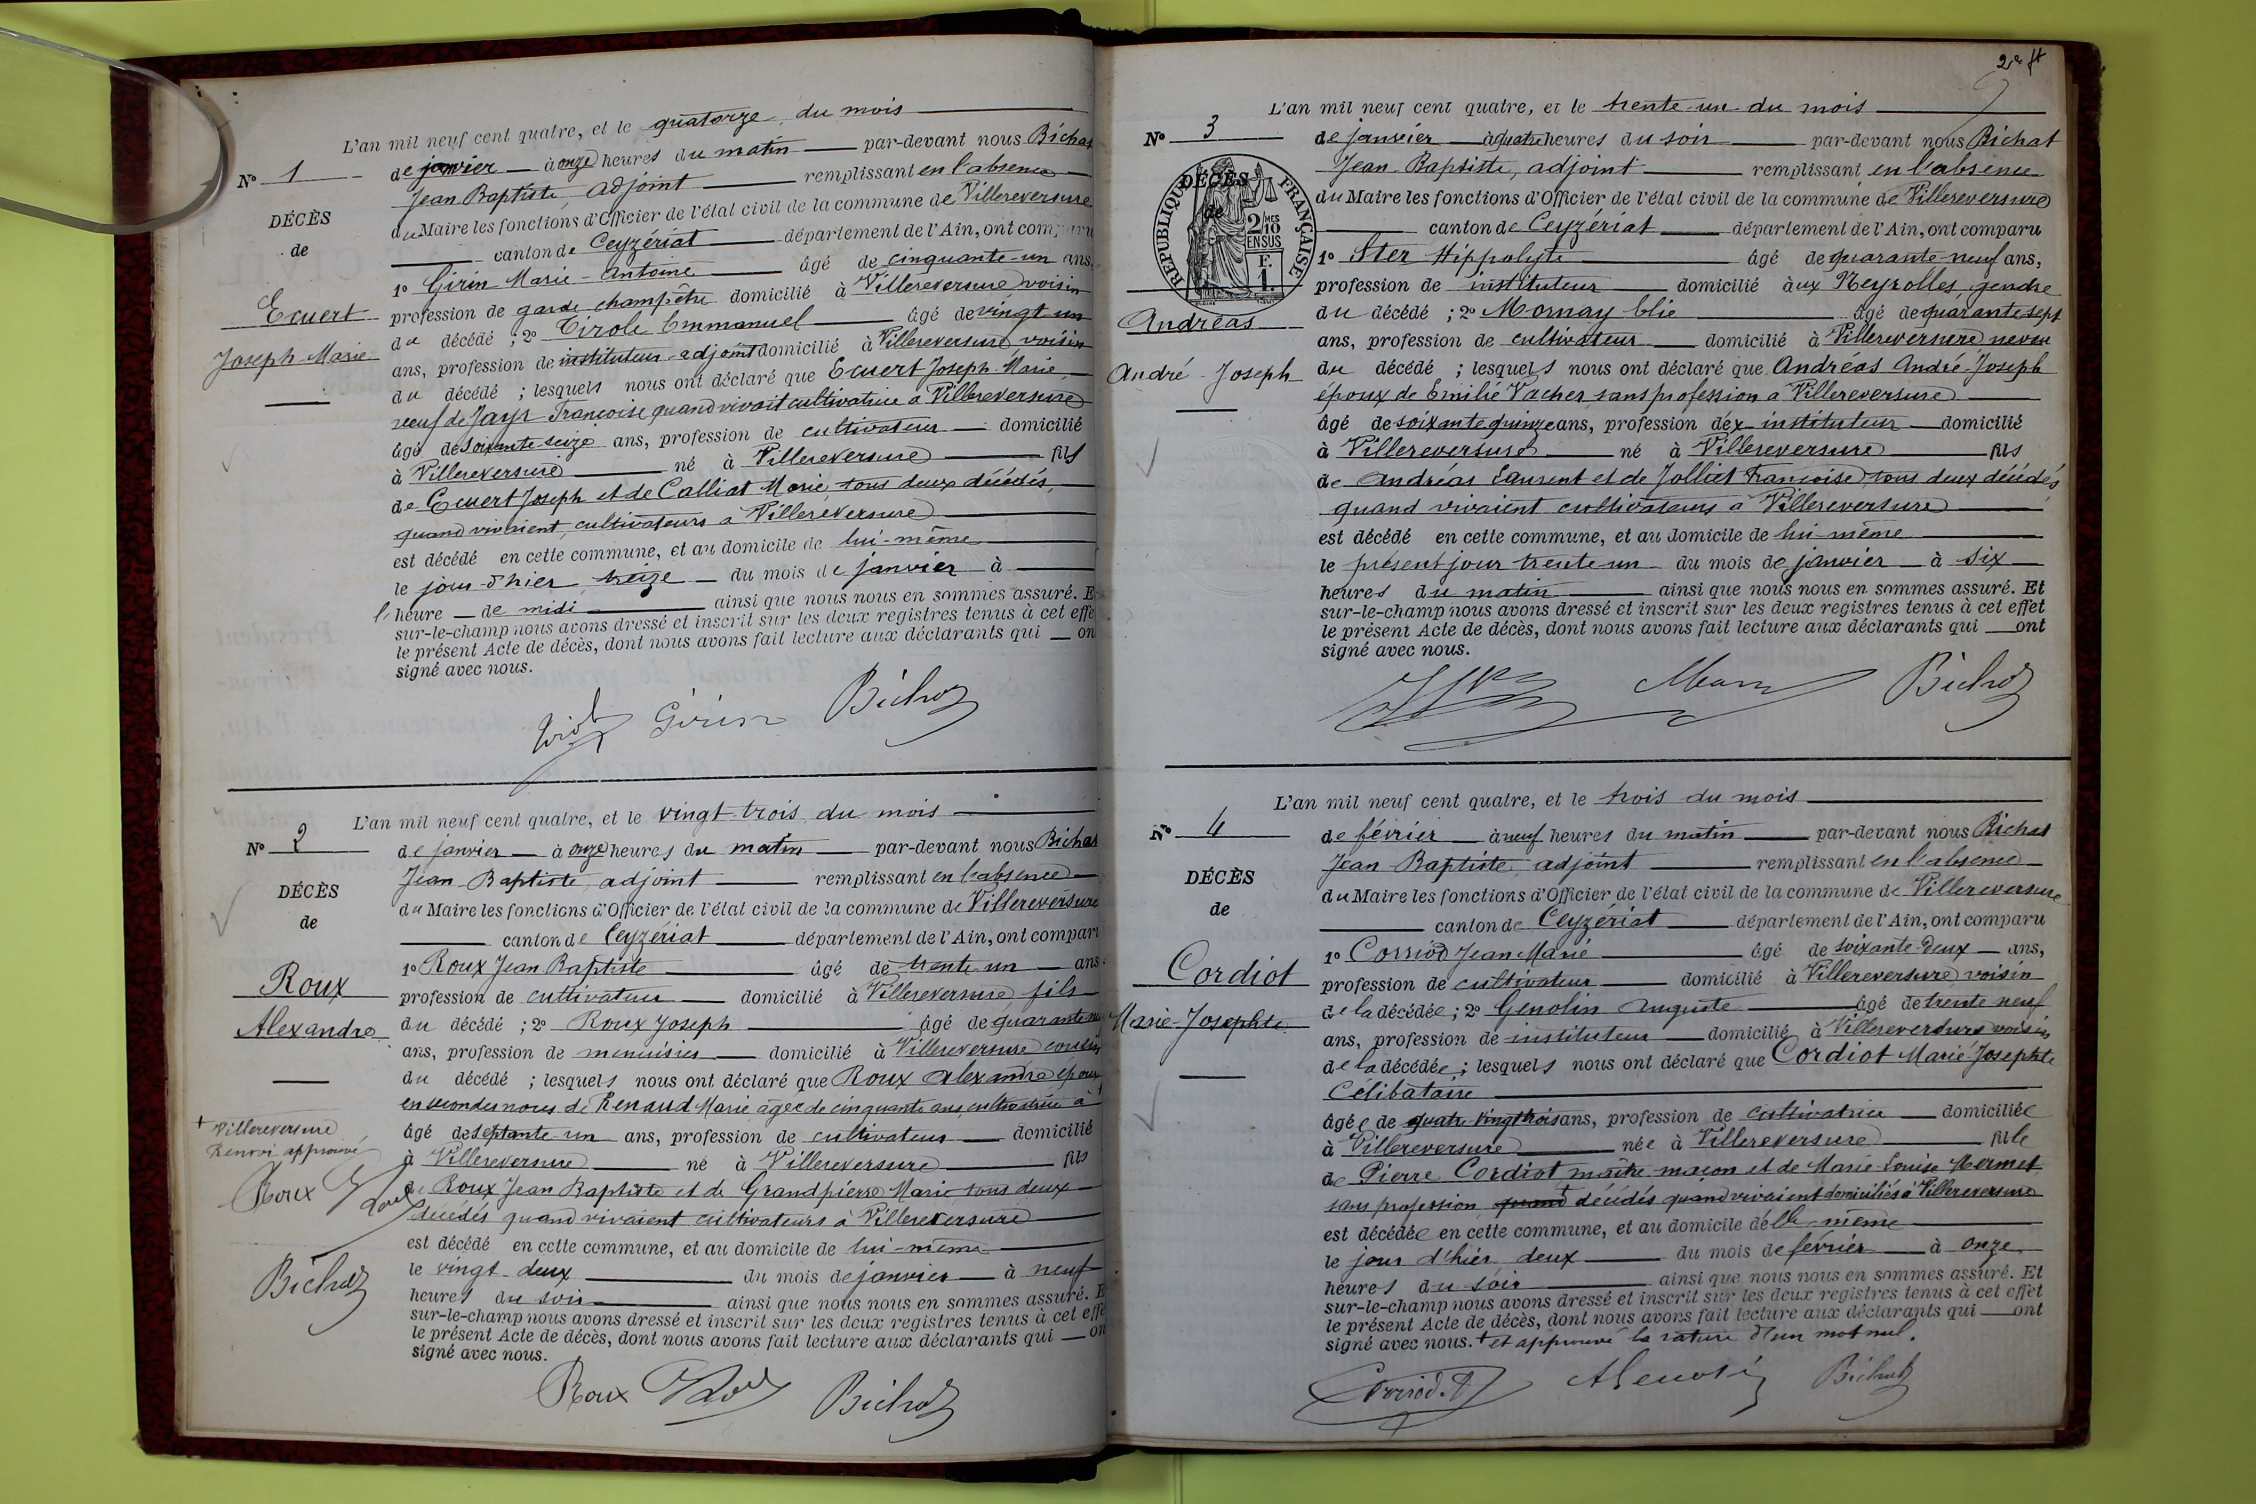 L'an mil neuf cent quatre, et le quatorze du mois
N° 1
de janvier à onze heures du matin par-devant nous Bichat
Jean Baptiste, adjoint remplissant en l'absence
DÉCÈS
du Maire les fonctions d'Officier de l'état civil de la commune de Villereversure
de
canton de Ceyzériat département de l'Ain, ont comparu
1° Girin Marie-Antoine âgé de cinquante-un ans,
Ecuert
profession de garde champêtre domicilié à Villereversure voisin
du décédé ; 2° Tirole Emmanuel âgé de vingt un
Joseph-Marie
ans, profession de instituteur-adjoint domicilié à Villereversure voisin
du décédé ; lesquels nous ont déclaré que Ecuert Joseph-Marie,
veuf de Jayr Françoise quand vivait cultivatrice à Villereversure
âgé de soixante-seize ans, profession de cultivateur domicilié
à Villereversure né à Villereversure fils
de Ecuert Joseph et de Calliat Marie, tous deux décédés,
quand vivaient, cultivateurs à Villereversure
est décédé en cette commune, et au domicile de lui-même
le jour d'hier treize du mois de janvier à
l'heure de midi ainsi que nous nous en sommes assuré. Et
sur-le-champ nous avons dressé et inscrit sur les deux registres tenus à cet effe
le présent Acte de décès, dont nous avons fait lecture aux déclarants qui on
signé avec nous.
Girin Bichat
L'an mil neuf cent quatre, et le vingt-trois du mois
N° 2
de janvier à onze heures du matin par-devant nous Bichat
Jean-Baptiste, adjoint remplissant en l'absence
DÉCÈS
du Maire les fonctions d'Officier de l'état civil de la commune de Villereversure
de
canton de Ceyzériat département de l'Ain, ont comparu
1° Roux Jean Baptiste âgé de trente-un ans
Roux
profession de cultivateur domicilié à Villereversure fils
Alexandre
du décédé ; 2° Roux Joseph âgé de quarante
ans, profession de menuisier domicilié à Villereversure cousin
du décédé ; lesquels nous ont déclaré que Roux Alexandre époux
en secondes noces de Renaud Marie âgée de cinquante ans, cultivatrice à +
+ Villereversure
Renvoi approuvé
âgé de septante-un ans, profession de cultivateur domicilié
à Villereversure né à Villereversure fils
Roux Roux
de Roux Jean Baptiste et de Grandpierre Marie tous deux
décédés quand vivaient cultivateurs à Villereversure
est décédé en cette commune, et au domicile de lui-même
Bichat
le vingt-deux du mois de janvier à neuf
heures du soir ainsi que nous nous en sommes assuré. E
sur-le-champ nous avons dressé et inscrit sur les deux registres tenus à cet effe
le présent Acte de décès, dont nous avons fait lecture aux déclarants qui on
signé avec nous.
Roux Roux Bichat
L'an mil neuf cent quatre, et le trente-un du mois
N° 3
de janvier à quatre heures du soir par-devant nous Bichat
Jean-Baptiste, adjoint remplissant en l'absence
DÉCÈS
de
RÉPUBLIQUE FRANÇAISE
2/10MES
EN SUS
F.
1.
du Maire les fonctions d'Officier de l'état civil de la commune de Villereversure
canton de Ceyzériat département de l'Ain, ont comparu
1° Ster Hippolyte âgé de quarante-neuf ans,
profession de instituteur domicilié aux Neyrolles, gendre
Andréas
du décédé ; 2° Mornay Élie âgé de quarante sept
ans, profession de cultivateur domicilié à Villereversure neveu
André-Joseph
du décédé ; lesquels nous ont déclaré que Andréas André-Joseph
époux de Emilie Vacher sans profession à Villereversure
âgé de soixante quinze ans, profession d'ex-instituteur domicilié
à Villereversure né à Villereversure fils
de Andréas Laurent et de Jolliet Françoise, tous deux décédés
quand vivaient cultivateurs à Villereversure
est décédé en cette commune, et au domicile de lui-même
le présent jour trente-un du mois de janvier à six
heures du matin ainsi que nous nous en sommes assuré. Et
sur-le-champ nous avons dressé et inscrit sur les deux registres tenus à cet effet
le présent Acte de décès, dont nous avons fait lecture aux déclarants qui ont
signé avec nous.
Bichat
L'an mil neuf cent quatre, et le trois du mois
N° 4
de février à neuf heures du matin par-devant nous Bichat
Jean-Baptiste, adjoint remplissant en l'absence
DÉCÈS
du Maire les fonctions d'Officier de l'état civil de la commune de Villereversure
de
canton de Ceyzériat département de l'Ain, ont comparu
1° Corriod Jean Marie âgé de soixante-deux ans,
Cordiot
profession de cultivateur domicilié à Villereversure voisin
de la décédée ; 2° Genolin Auguste âgé de trente neuf
Marie-Josephte
ans, profession de instituteur domicilié à Villereversure voisin
de la décédée ; lesquels nous ont déclaré que Cordiot Marie-Josephte
Célibataire
âgée de quatre vingt trois ans, profession de cultivatrice domiciliée
à Villereversure née à Villereversure fille
de Pierre Cordiot maître-maçon et de Marie-Louise Mermet
sans profession quand décédés quand vivaient domiciliés à Villereversure
est décédée en cette commune, et au domicile d'elle-même
le jour d'hier deux du mois de février à onze
heures du soir ainsi que nous nous en sommes assuré. Et
sur-le-champ nous avons dressé et inscrit sur les deux registres tenus à cet effet
le présent Acte de décès, dont nous avons fait lecture aux déclarants qui ont
signé avec nous. + et approuvé la rature d'un mot nul.
Corriod A Genolin Bichat